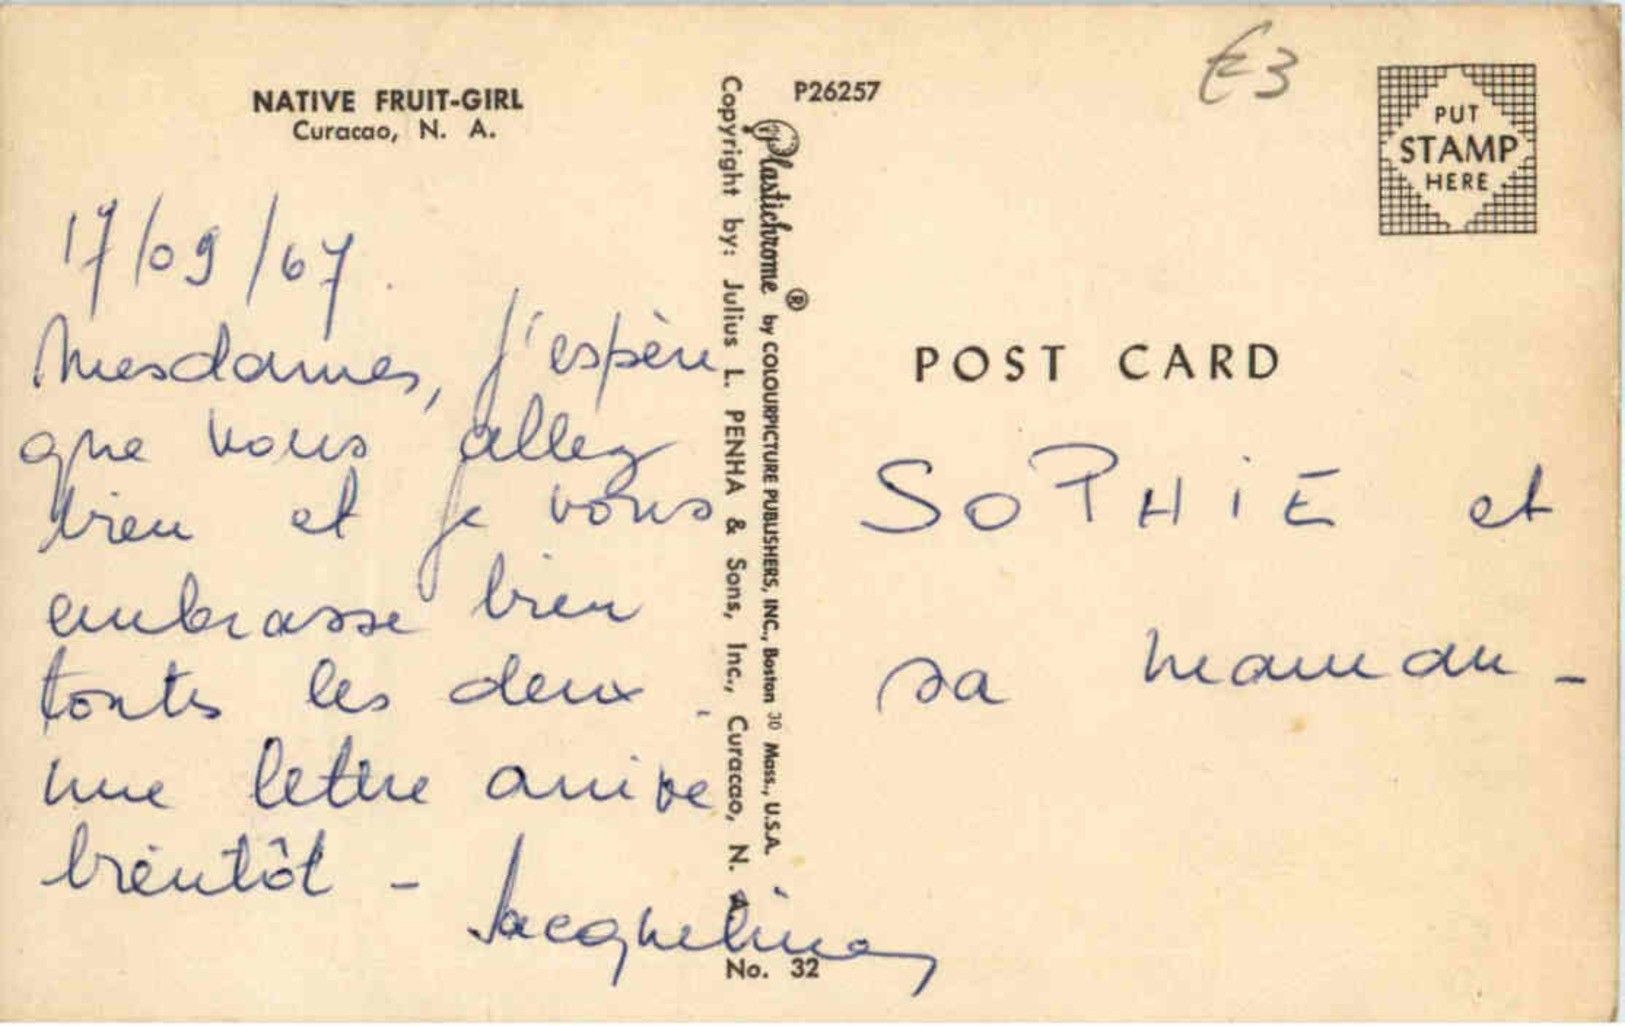 NATIVE FRUIT-GIRL
Curacao, N. A.
17/09/67.
Mesdames, j'espère
que vous allez
bien et je vous
embrasse bien
toutes les deux.
une lettre arrive
bientôt -
Jacqueline
P26257
Plastichrome ® by COLOURPICTURE PUBLISHERS, INC., Boston 30 Mass., U.S.A.
Copyright by: Julius L. PENHA & Sons, Inc., Curacao, N. A.
No. 32
€3
PUT
STAMP
HERE
POST CARD
SOPHiE et
sa maman -